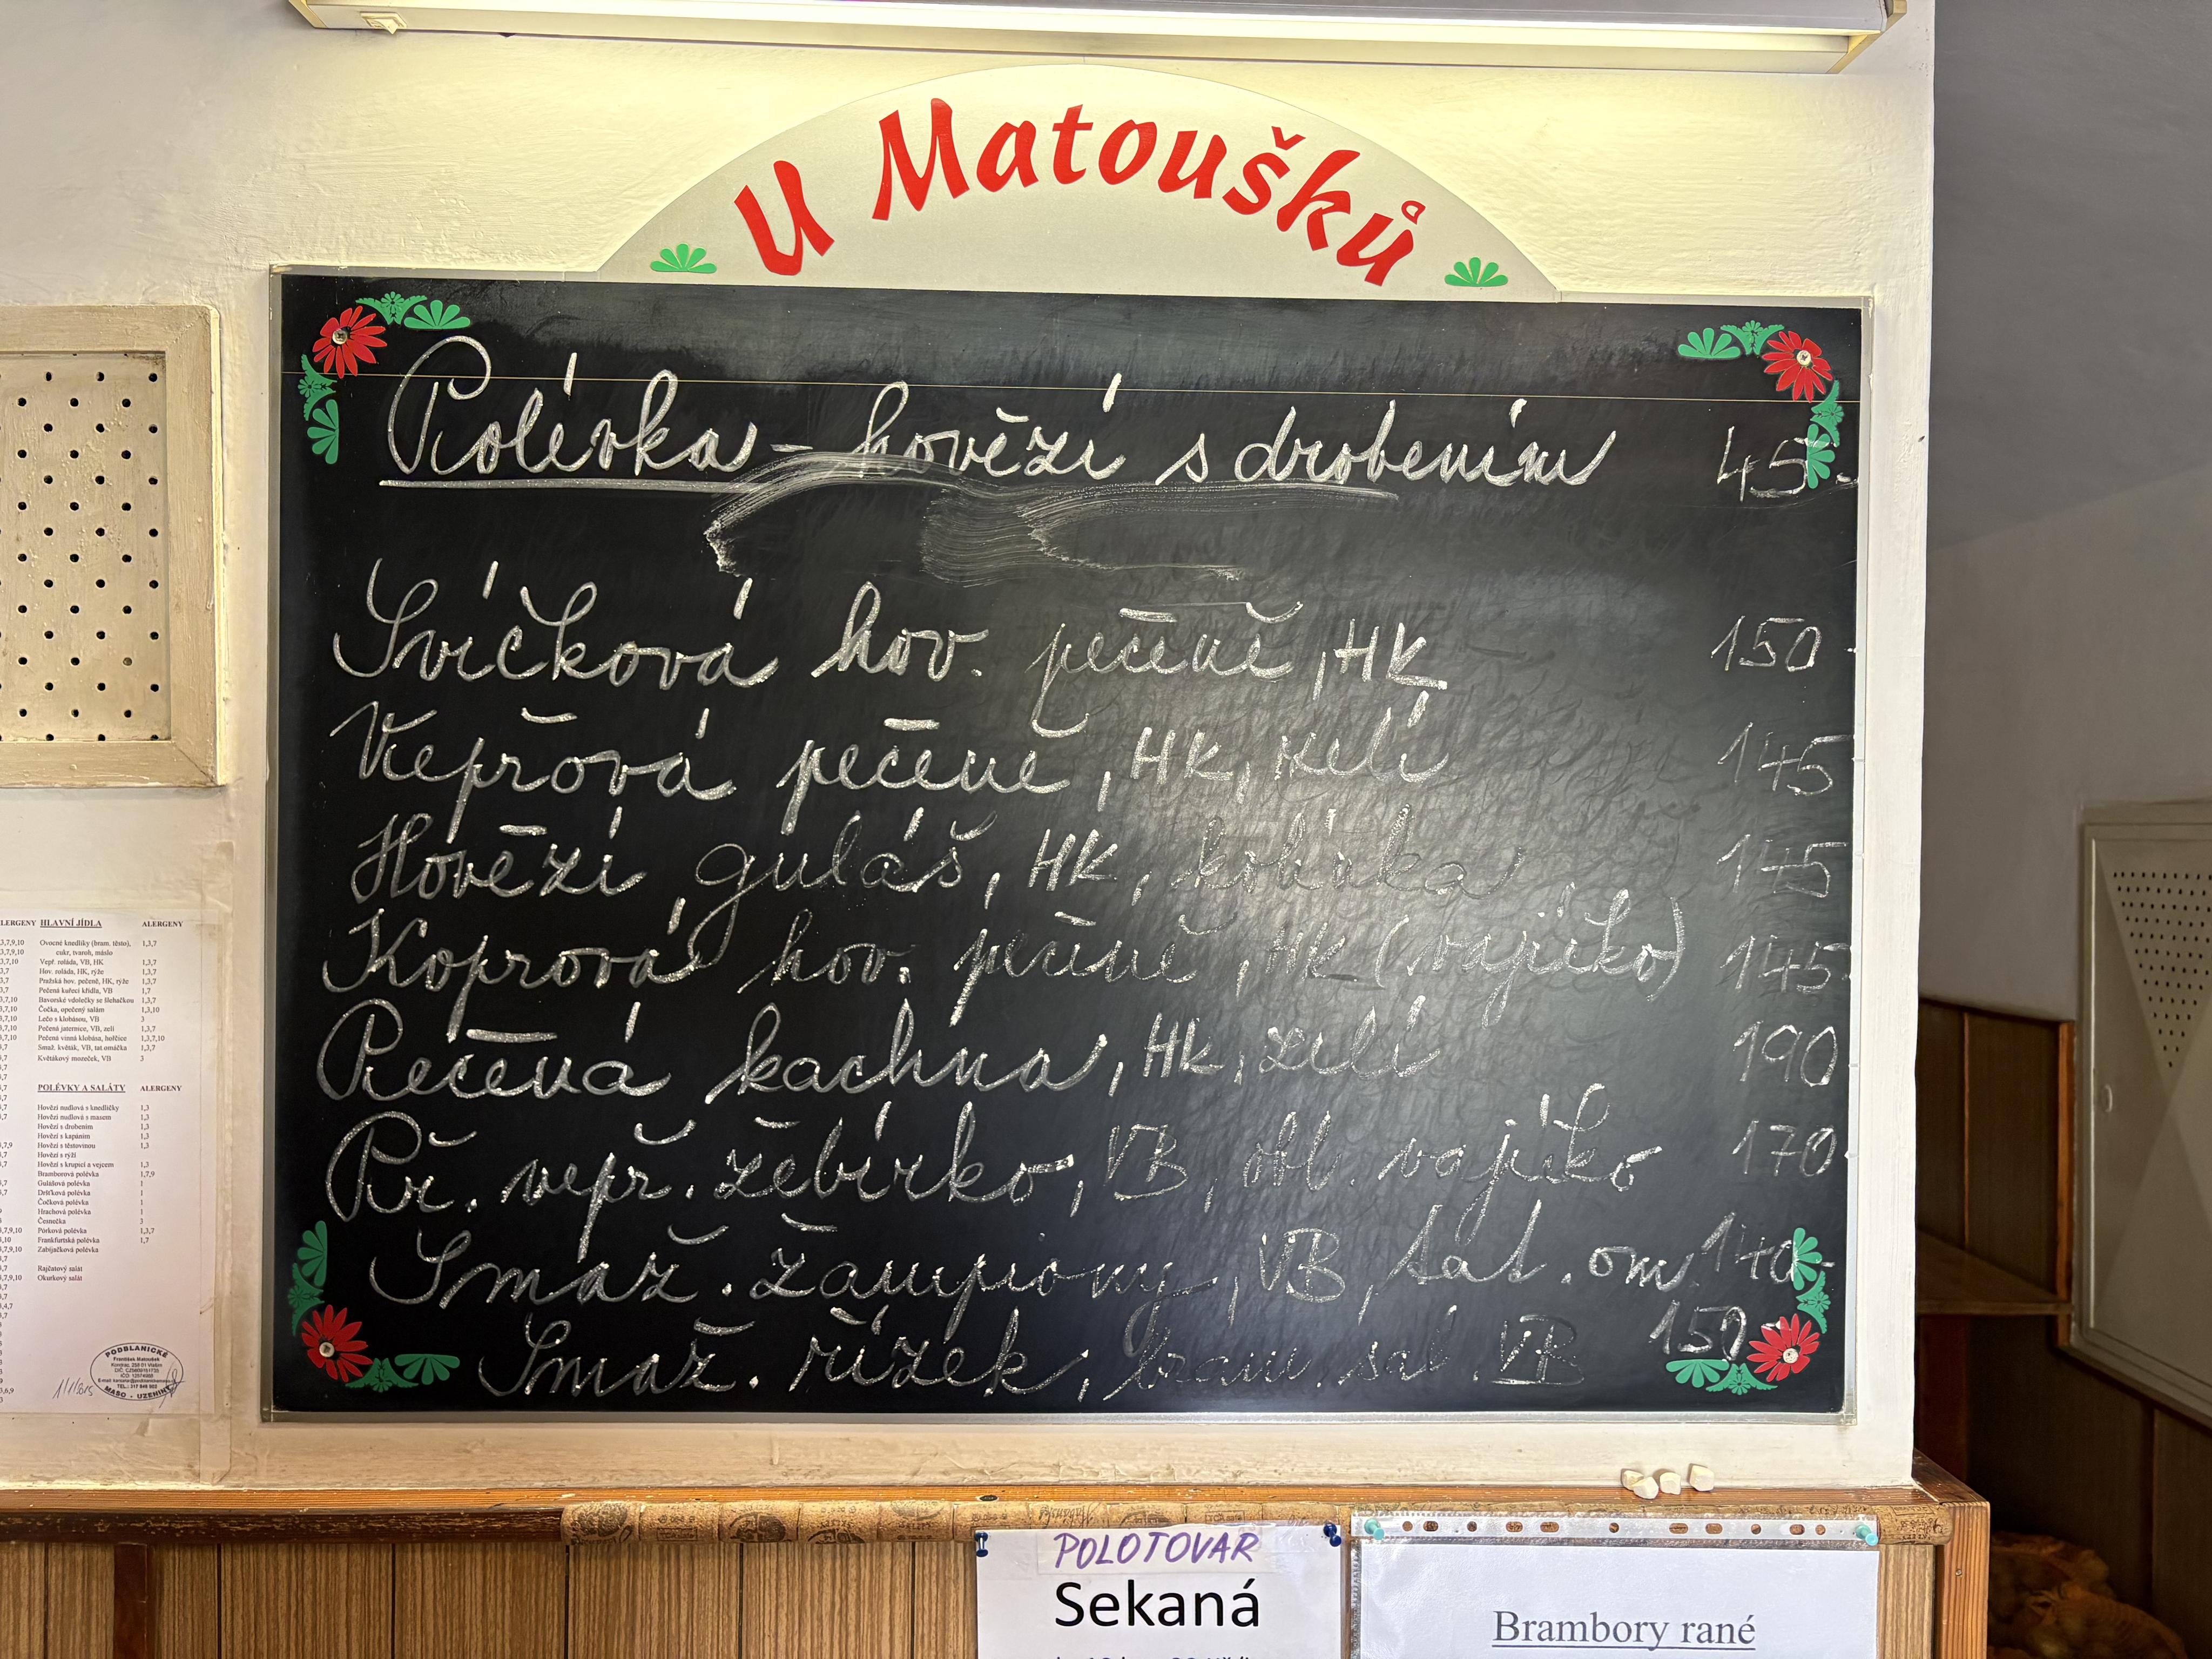 U Matoušků
Polévka - hovězí s drobením 45-
Svíčková hov. pečeně, HK 150-
Vepřová pečeně, HK, zelí 145
Hovězí guláš, HK, 145
Koprová hov. pečeně, HK (vajíčko) 145-
Pečená kachna, HK, zelí 190
Př. vepř. žebírko, VB, obl. vajíčko 170-
Smaž. žampiony, VB, tat. om. 140-
Smaž. řízek, bram. sal. VB 150-
ALERGENY HLAVNÍ JÍDLA ALERGENY
Ovocné knedlíky (bram. těsto), 1,3,7
cukr, tvaroh, máslo
Vepř. roláda, VB, HK 1,3,7
Hov. roláda, HK, rýže 1,3,7
Pražská hov. pečeně, HK, rýže 1,3,7
Pečená kuřecí křídla, VB 1,7
Bavorské vdolečky se šlehačkou 1,3,7
Čočka, opečený salám 1,3,10
Lečo s klobásou, VB 3
Pečená jaternice, VB, zelí 1,3,7
Pečená vinná klobása, hořčice 1,3,7,10
Smaž. květák, VB, tat.omáčka 1,3,7
Květákový mozeček, VB 3
POLÉVKY A SALÁTY ALERGENY
Hovězí nudlová s knedlíčky 1,3
Hovězí nudlová s masem 1,3
Hovězí s drobením 1,3
Hovězí s kapáním 1,3
Hovězí s těstovinou 1,3
Hovězí s rýží
Hovězí s krupicí a vejcem 1,3
Bramborová polévka 1,7,9
Gulášová polévka 1
Dršťková polévka 1
Čočková polévka 1
Hrachová polévka 1
Česnečka 3
Pórková polévka 1,3,7
Frankfurtská polévka 1,7
Zabijačková polévka
Rajčatový salát
Okurkový salát
PODBLANICKÉ
František Matoušek
MASO - UZENINY
POLOTOVAR
Sekaná
Brambory rané